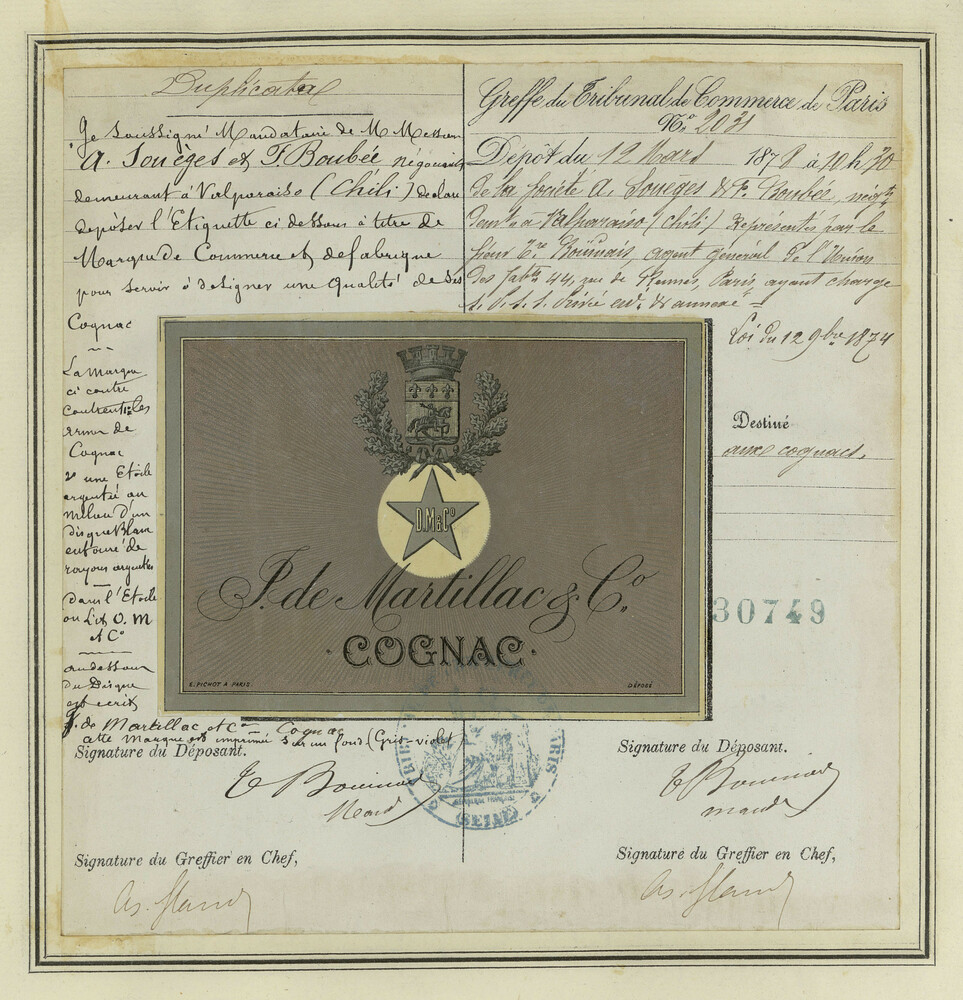 Duplicata
Je soussigné Mandataire de M Messieurs
A. Souèges et F. Boubée négociants
demeurant à Valparaiso (Chili) declare
déposer l'Etiquette ci dessous à titre de
Marque de Commerce et de fabrique
pour servir à designer une qualité de ses
Cognac
La marque
ci contre
contient les
armes de
Cognac
une Etoile
argentée au
milieu d'un
disque Blanc
entouré de
rayons argentés
dans l'Etoile
on Lit D. M
et Co
au dessous
du Disque
est ecrit
J. de Martillac et Co Cognac
cette marque est imprimée sur un fond (Gris-violet)
Signature du Déposant.
Mand
Signature du Greffier en Chef,
Greffe du Tribunal de Commerce de Paris
No. 2031
Dépôt du 12 Mars 1878 à 10 h 30
de la Société A. Souèges & F. Boubée, négts
demt à Valparaiso (Chili) Représentés par le
Sieur agent général de l'Union
des Fabts 44, rue de Rennes, Paris, ayant charge
Loi du 12 9bre 1874
Destiné
aux cognacs.
30749
Signature du Déposant.
mand
Signature du Greffier en Chef,
D.M.&Co
J. de Martillac & Co.
COGNAC
E. PICHOT A PARIS.
DÉPOSÉ
PARIS
(SEINE)